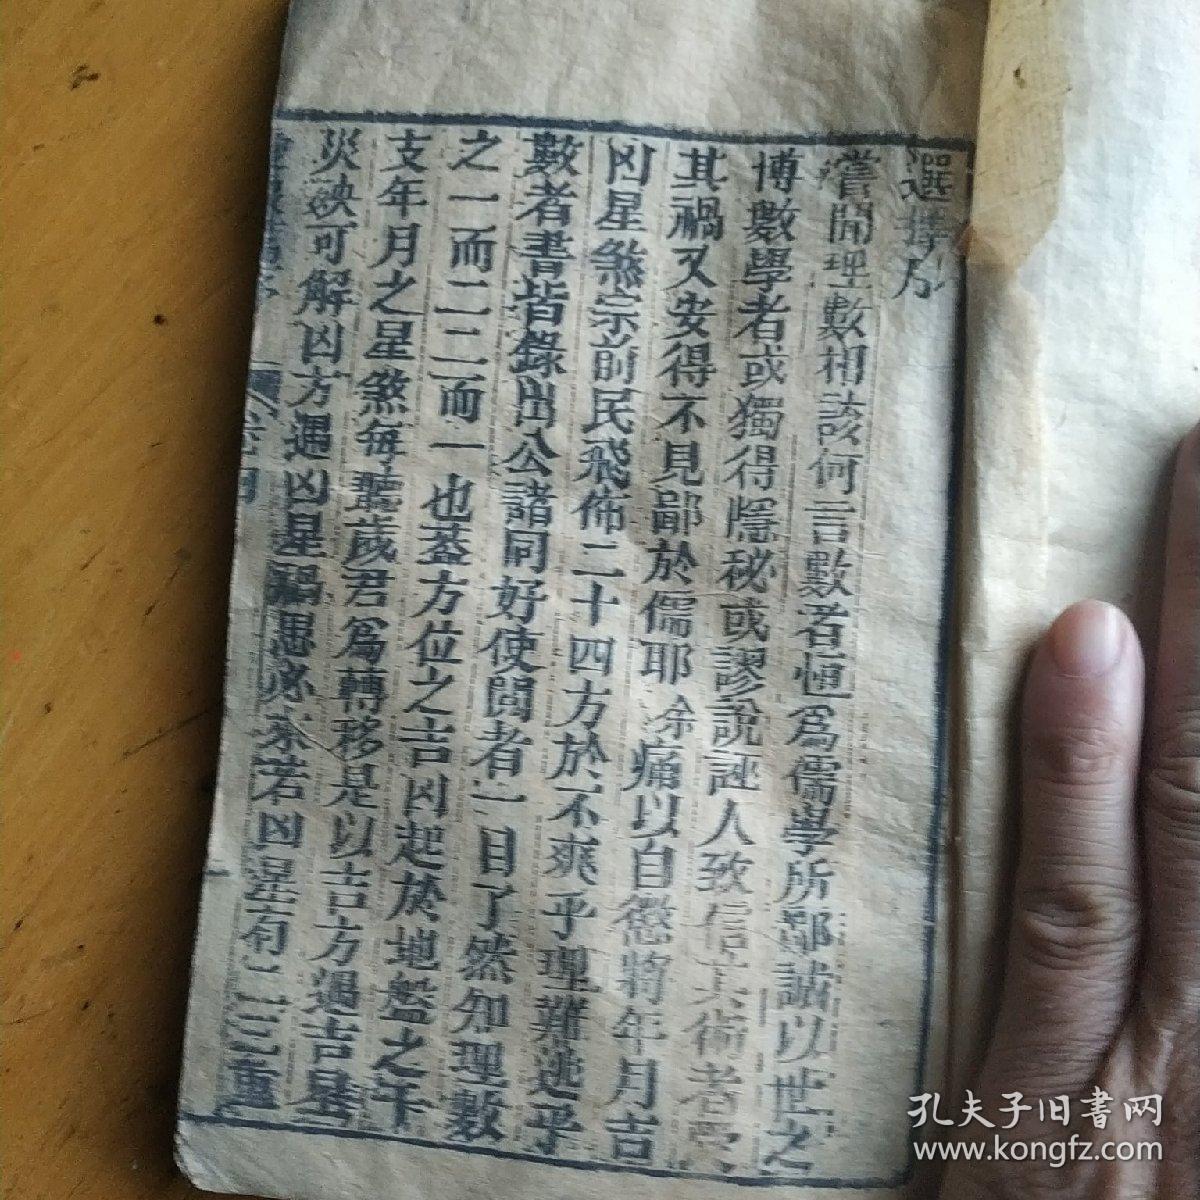 選擇序
嘗聞理數相該何言數者恒爲儒學所鄙誠以世之
博數學者或獨得隱秘或謬說誣人致信其術者受
其禍又安得不見鄙於儒耶余痛以自懲將年月吉
凶星煞宗前民飛佈二十四方於不爽乎理難逃乎
數者書皆錄出公諸同好使閱者一目了然知理數
之一而二二而一也葢方位之吉凶起於地盤之干
支年月之星煞每聽歲君爲轉移是以吉方遇吉星
災殃可解凶方遇凶星禍患必來若凶星有二三重
孔夫子旧書网
www.kongfz.com